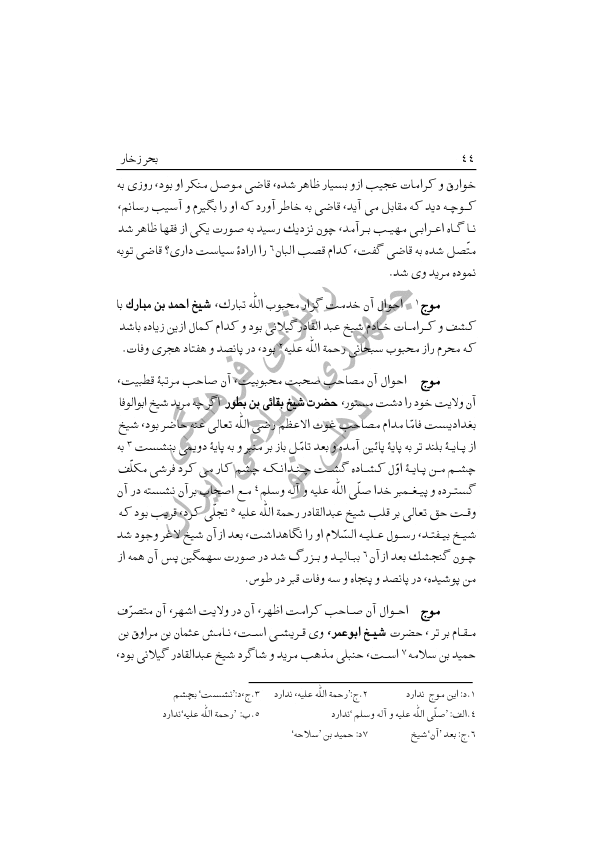 ٤٤ بحر زخار
خوارق و کرامات عجیب ازو بسیار ظاهر شده، قاضی موصل منکر او بود، روزی به
کوچه دید که مقابل می آید، قاضی به خاطر آورد که او را بگیرم و آسیب رسانم،
ناگاه اعرابی مهیب برآمد، چون نزدیك رسید به صورت یکی از فقها ظاهر شد
متّصل شده به قاضی گفت، کدام قصب البان٦ را ارادۀ سیاست داری؟ قاضی توبه
نموده مرید وی شد.
موج١ احوال آن خدمت گزار محبوب اللّه تبارك، شیخ احمد بن مبارك با
کشف و کرامات خادم شیخ عبد القادر گیلانی بود و کدام کمال ازین زیاده باشد
که محرم راز محبوب سبحانی رحمة اللّه علیه٢ بود، در پانصد و هفتاد هجری وفات.
موج احوال آن مصاحب صحبت محبوبیت، آن صاحب مرتبۀ قطبیت،
آن ولایت خود را دشت مستور، حضرت شیخ بقائی بن بطور اگرچه مرید شیخ ابوالوفا
بغدادیست فامّا مدام مصاحب غوث الاعظم رضی اللّه تعالی عنه حاضر بود، شیخ
از پایۀ بلند تر به پایۀ پائین آمده و بعد تامّل باز بر منبر و به پایۀ دویمی بنشست٣ به
چشم من پایۀ اوّل کشاده گشت چندانکه چشم کار می کرد فرشی مکلّف
گسترده و پیغمبر خدا صلّی اللّه علیه و آله وسلم٤ مع اصحاب برآن نشسته در آن
وقت حق تعالی بر قلب شیخ عبدالقادر رحمة اللّه علیه٥ تجلّی کرد، قریب بود که
شیخ بیفتد، رسول علیه السّلام او را نگاهداشت، بعد از آن شیخ لاغر وجود شد
چون گنجشك بعد از آن٦ ببالید و بزرگ شد در صورت سهمگین پس آن همه از
من پوشیده، در پانصد و پنجاه و سه وفات قبر در طوس.
موج احوال آن صاحب کرامت اظهر، آن در ولایت اشهر، آن متصرّف
مقام بر تر، حضرت شیخ ابوعمر، وی قریشی است، نامش عثمان بن مراوق بن
حمید بن سلامه٧ است، حنبلی مذهب مرید و شاگرد شیخ عبدالقادر گیلانی بود،
١.د: این موج ندارد ٢.ج:’رحمة اللّه علیه، ندارد ٣.ج،د:’نشست‘ بچشم
٤.الف: ’صلّی اللّه علیه و آله وسلم ‘ندارد ٥.ب: ’رحمة اللّه علیه‘ندارد
٦.ج: بعد ’آن‘شیخ ٧د: حمید بن ’سلاحه‘